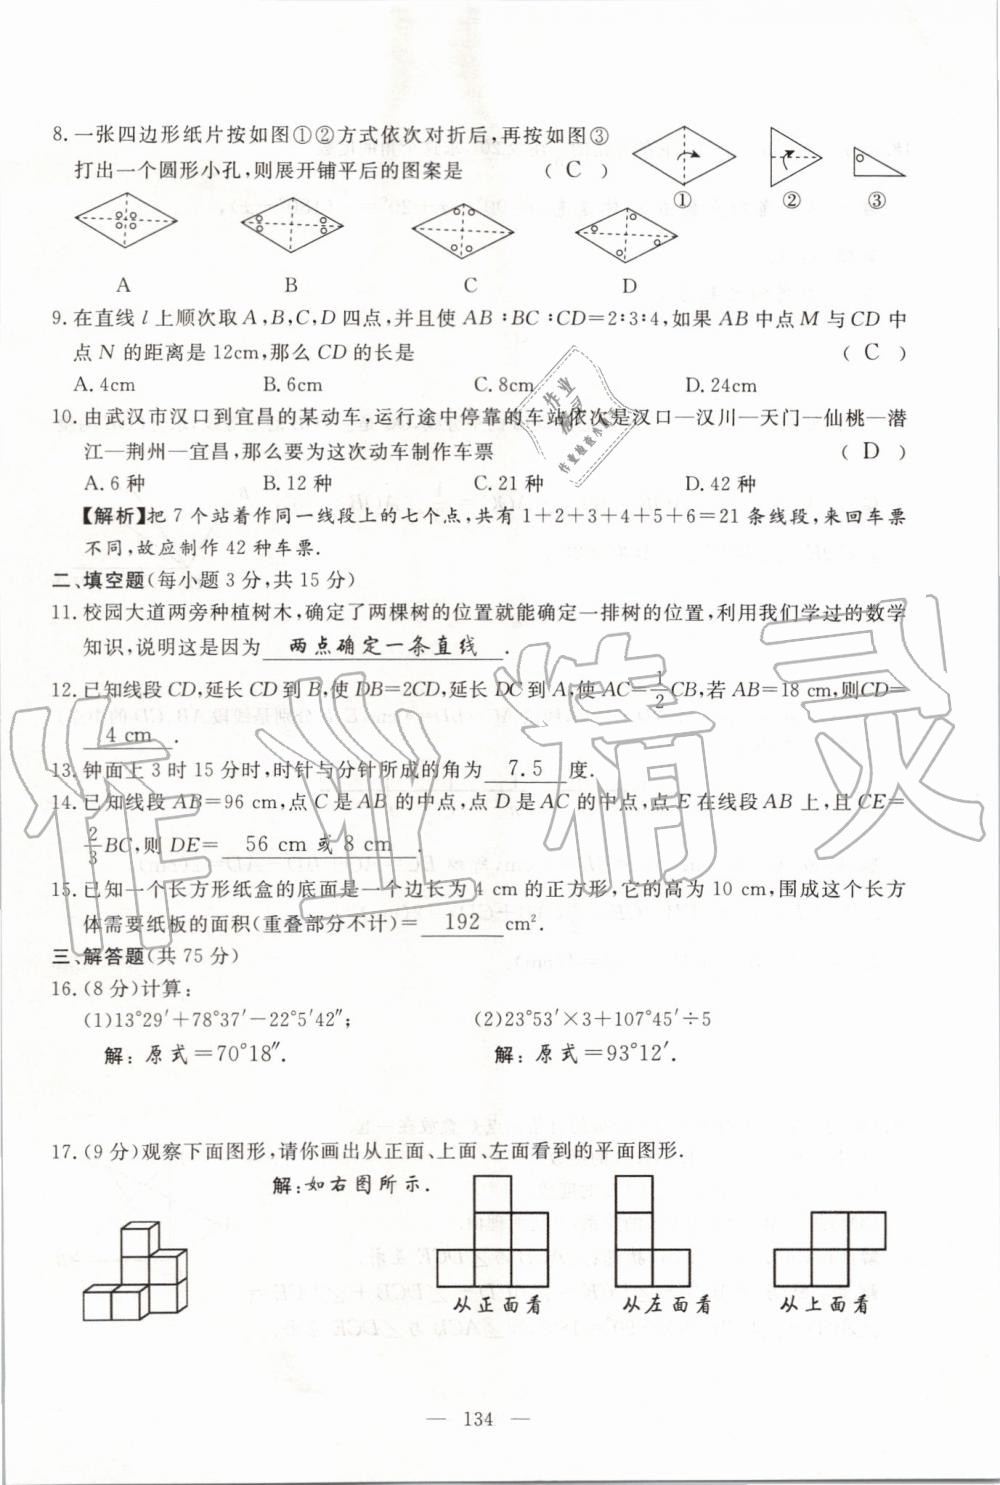 8. 一张四边形纸片按如图①②方式依次对折后,再按如图③
打出一个圆形小孔,则展开铺平后的图案是 ( C )
① ② ③
A B C D
9. 在直线 l 上顺次取 A,B,C,D 四点,并且使 AB∶BC∶CD=2∶3∶4,如果 AB 中点 M 与 CD 中
点 N 的距离是 12cm,那么 CD 的长是 ( C )
A. 4cm B. 6cm C. 8cm D. 24cm
10. 由武汉市汉口到宜昌的某动车,运行途中停靠的车站依次是汉口—汉川—天门—仙桃—潜
江—荆州—宜昌,那么要为这次动车制作车票 ( D )
A. 6 种 B. 12 种 C. 21 种 D. 42 种
【解析】把 7 个站着作同一线段上的七个点,共有 1+2+3+4+5+6=21 条线段,来回车票
不同,故应制作 42 种车票.
二、填空题(每小题 3 分,共 15 分)
11. 校园大道两旁种植树木,确定了两棵树的位置就能确定一排树的位置,利用我们学过的数学
知识,说明这是因为 两点确定一条直线 .
12. 已知线段 CD,延长 CD 到 B,使 DB=2CD,延长 DC 到 A,使 AC=1/2 CB,若 AB=18 cm,则CD=
4 cm .
13. 钟面上 3 时 15 分时,时针与分针所成的角为 7.5 度.
14. 已知线段 AB=96 cm,点 C 是 AB 的中点,点 D 是 AC 的中点,点 E 在线段 AB 上,且 CE=
2/3 BC,则 DE= 56 cm 或 8 cm .
15. 已知一个长方形纸盒的底面是一个边长为 4 cm 的正方形,它的高为 10 cm,围成这个长方
体需要纸板的面积(重叠部分不计)= 192 cm².
三、解答题(共 75 分)
16. (8 分)计算:
(1)13°29′+78°37′−22°5′42″; (2)23°53′×3+107°45′÷5
解:原式=70°18″. 解:原式=93°12′.
17. (9 分)观察下面图形,请你画出从正面、上面、左面看到的平面图形.
解:如右图所示.
从正面看 从左面看 从上面看
— 134 —
作业精灵